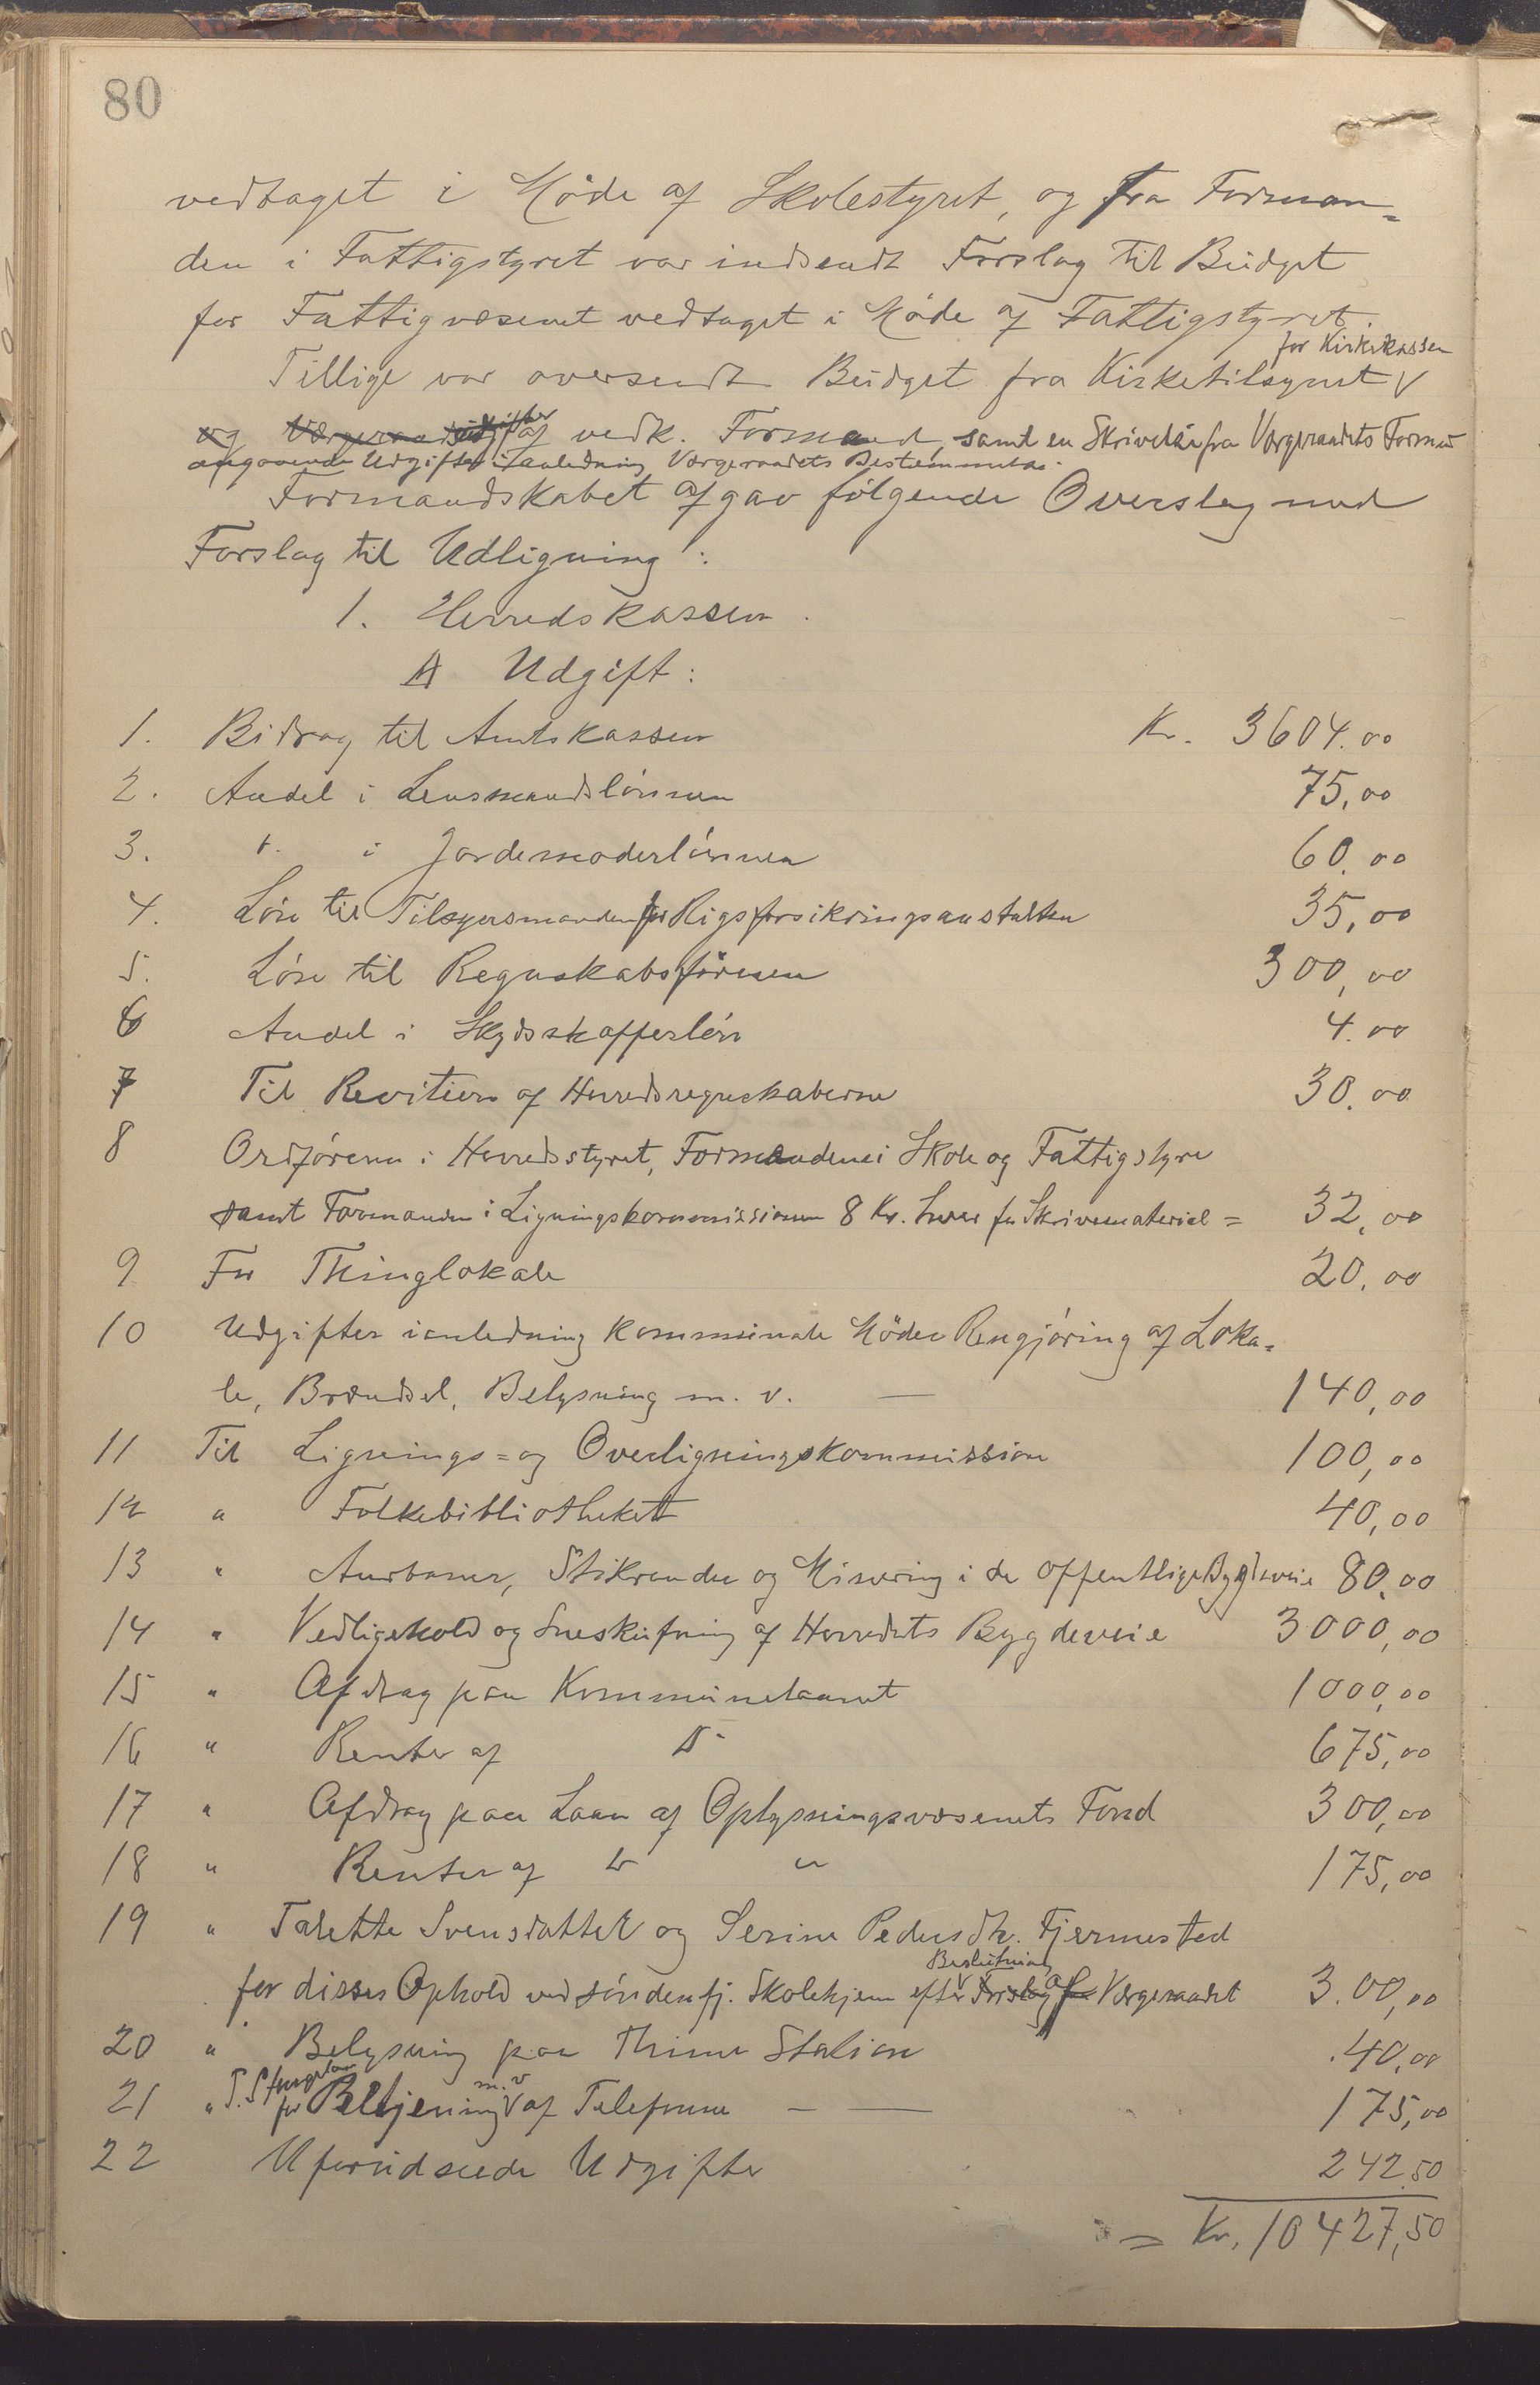 80
vedtaget i Möde af Skolestyret, og fra Forman=
den i Fattigstyret var indsendt Forslag til Budget
for Fattigvæsenet vedtaget i Möde af Fattigstyret.
for Kirkekassen
Tillige var oversendt Budget fra Kirketilsynet V
og Værgeraadets af vedk. Formand, samt en Skrivelse fra Værgeraadets Formand
angaaende Udgifter i Anledning Værgeraadets Bestemmelse.
Formandskabet afgav følgende Overslag med
Forslag til Udligning:
1. Herredskassen.
A Udgift:
1. Bidrag til Amtskassen Kr. 3604.00
2. Andel i Lensmandslönnen 75,00
3. " i Jordemoderlönnen 60.00
4. Lön til Tilsynsmanden for Rigsforsikringsanstalten 35,00
5. Lön til Regnskabsföreren 300,00
6 Andel i Skydsskafferlön 4.00
7 Til Revition af Herredsregnskaberne 30.00
8 Ordförerne i Herredsstyret, Formandene i Skole og Fattigstyre
samt Formanden i Ligningskommissionen 8 Kr. hver for Skrivematerial = 32,00
9 For Thinglokale 20.00
10 Udgifter i anledning kommunale Möder Rengjöring af Loka=
le, Brændsel, Belysning m. v. — 140,00
11 Til Lignings= og Overligningskommission 100,00
12 " Folkebibliotheket 40,00
13 " Aurbaner, Stikrender og Minering i de offentlige Bygdeveie 80.00
14 " Vedligehold og Sneskufning af Herredets Bygdeveie 3000,00
15 " Afdrag paa Kommunelaanet 1000,00
16 " Renter af D- 675,00
17 " Afdrag paa Laan af Oplysningsvæsenets Fond 300,00
18 " Renter af " " 175,00
19 " Talette Svensdatter og Serine Pedersdtr. Fjermestad
Beslutning
for disses Ophold ved söndenfj. Skolehjem efter V Forslag af fra Værgeraadet 3.00,00
20 " Belysning paa Thime Station 40,00
21 " T. S for Betjening m.v V af Telefonen — — 175,00
22 Uforudseede Udgifter 242.50
= Kr. 10427,50